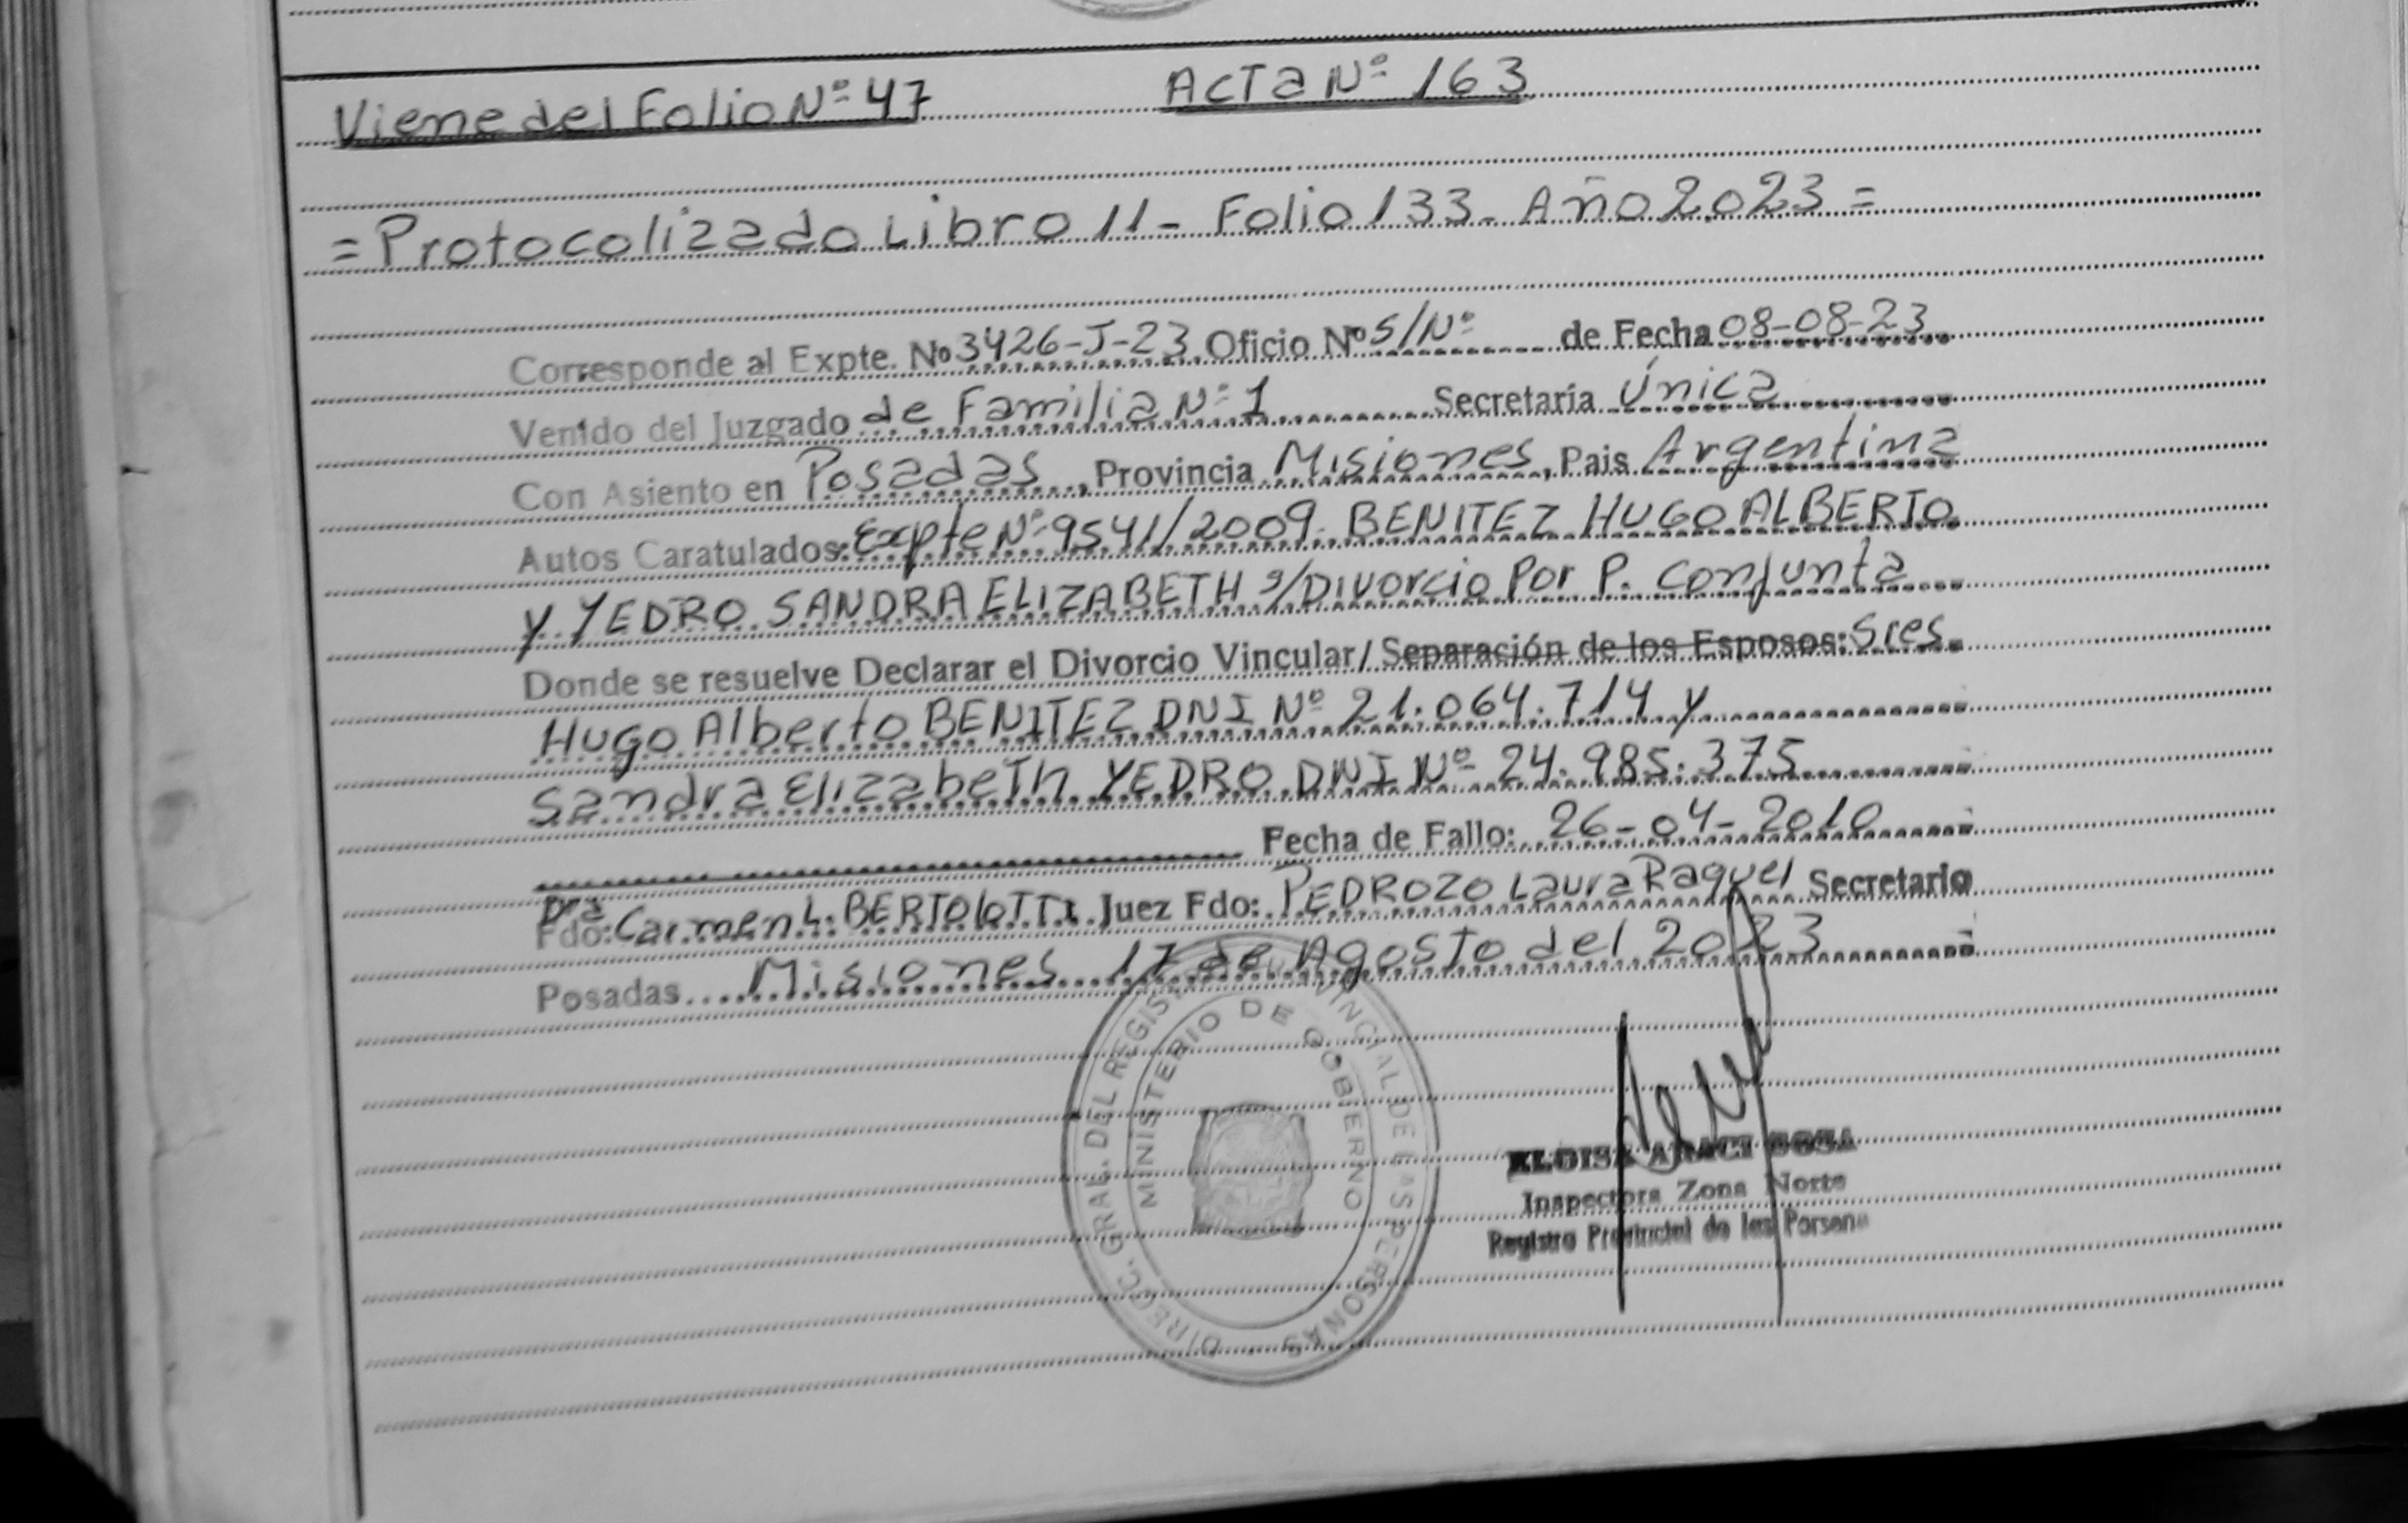 Viene del Folio Nº 47 ACTA Nº 163
= Protocolizado Libro 11 - Folio 133 - Año 2.023 =
Corresponde al Expte. Nº 3426-J-23 Oficio Nº S/Nº de Fecha 08-08-23
Venido del Juzgado de Familia Nº 1 Secretaría Única
Con Asiento en Posadas, Provincia Misiones, Pais Argentina
Autos Caratulados: Expte Nº 9541/2009. BENITEZ HUGO ALBERTO
y YEDRO SANDRA ELIZABETH s/Divorcio Por P. Conjunta
Donde se resuelve Declarar el Divorcio Vincular / Separación de los Esposos: Sres.
Hugo Alberto BENITEZ DNI Nº 21.064.714 y
Sandra Elizabeth YEDRO DNI Nº 24.985.375
Fecha de Fallo: 26-04-2010
Fdo: Dra Carmen L. BERTOLOTTI Juez Fdo: PEDROZO Laura Raquel Secretario
Posadas Misiones 17 de Agosto del 2023
DIRECC. GRAL. DEL REGIST PROVINCIAL DE LAS PERSONAS
MINISTERIO DE GOBIERNO
ELOISA ARACI SOSA
Inspectora Zona Norte
Registro Provincial de las Persona